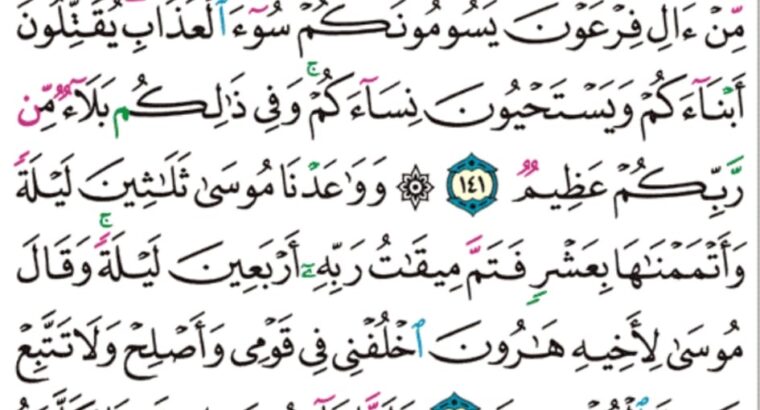 مِّنْ ءَالِ فِرْعَوْنَ يَسُومُونَكُمْ سُوٓءَ ٱلْعَذَابِ يُقَتِّلُونَ
أَبْنَآءَكُمْ وَيَسْتَحْيُونَ نِسَآءَكُمْ ۚ وَفِي ذَٰلِكُم بَلَآءٌ مِّن
رَّبِّكُمْ عَظِيمٌ ١٤١ ۞ وَوَٰعَدْنَا مُوسَىٰ ثَلَٰثِينَ لَيْلَةً
وَأَتْمَمْنَٰهَا بِعَشْرٍ فَتَمَّ مِيقَٰتُ رَبِّهِۦٓ أَرْبَعِينَ لَيْلَةً ۚ وَقَالَ
مُوسَىٰ لِأَخِيهِ هَٰرُونَ ٱخْلُفْنِي فِي قَوْمِي وَأَصْلِحْ وَلَا تَتَّبِعْ